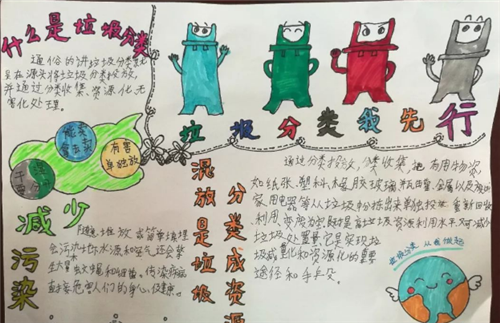 什么是垃圾分类
通俗的讲垃圾分类就
是在源头将垃圾分类投放,
并通过分类收集、资源化无
害化处理。
垃圾分类我先行
有害
单独放
干
减少
污染
随意堆放或简单填埋
会污染土水源和空气还会
大量蚊蝇和细菌,传染疾病
直接危害人们的身心健康。
混放是垃圾
分类成资源
通过分类投放,分类收集,把有用物资,
如纸张、塑料、橡胶玻璃瓶罐、金属以及废旧家
用电器等从垃圾中分拣出来重新回收
利用,变废为宝既提高垃圾资源利用水平,又可减少
垃圾处置量,它是实现垃
圾减量化和资源化的重要
途径和手段。
垃圾分类 从我做起